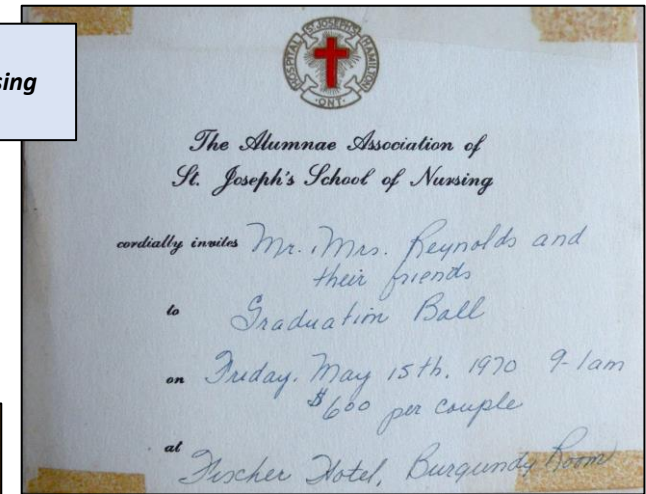 sing
HOSPITAL ST. JOSEPH'S HAMILTON
·ONT·
The Alumnae Association of
St. Joseph's School of Nursing
cordially invites Mr. & Mrs. Reynolds and
their friends
to Graduation Ball
on Friday, May 15th, 1970 9-1am
$6.00 per couple
at Fischer Hotel, Burgundy Room